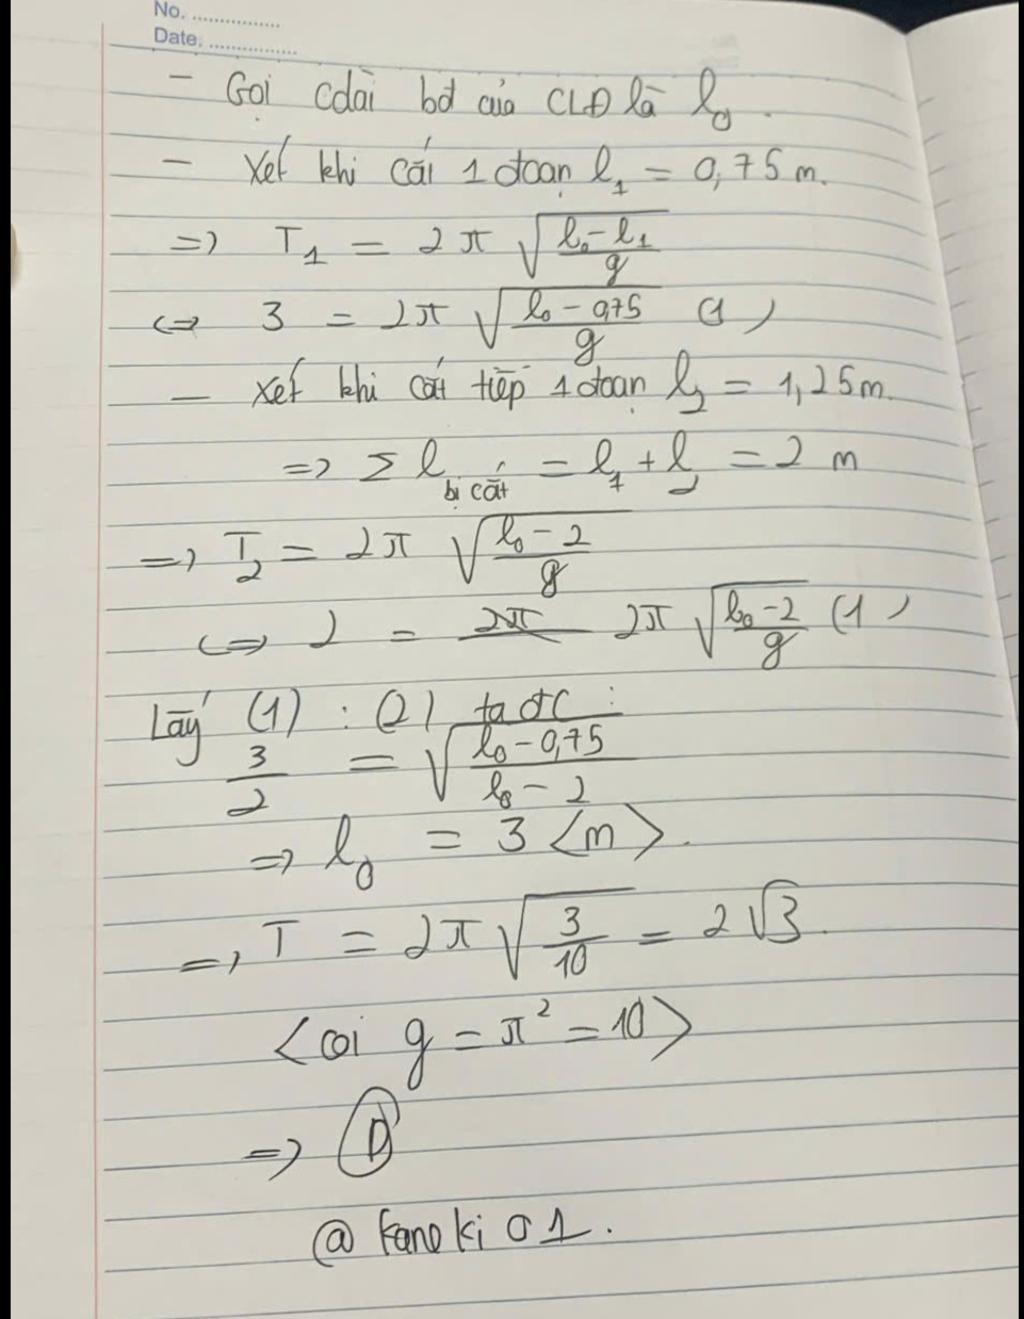 No. ................
Date. ................
- Gọi cdài bđ của CLĐ là l₀.
- Xét khi cắt 1 đoạn l₁ = 0,75 m.
=> T₁ = 2π √((l₀-l₁)/g)
<=> 3 = 2π √((l₀ - 0,75)/g) (1)
- Xét khi cắt tiếp 1 đoạn l₂ = 1,25m.
=> Σ l bị cắt = l₁ + l₂ = 2 m
=> T₂ = 2π √((l₀ - 2)/g)
<=> 2 = 2π 2π √((l₀-2)/g) (1)
Lấy (1) : (2) ta đc :
3/2 = √((l₀ - 0,75)/(l₀ - 2))
=> l₀ = 3 <m>.
=> T = 2π √(3/10) = 2√3.
<coi g = π² = 10>
=> D
@ kaneki 01.